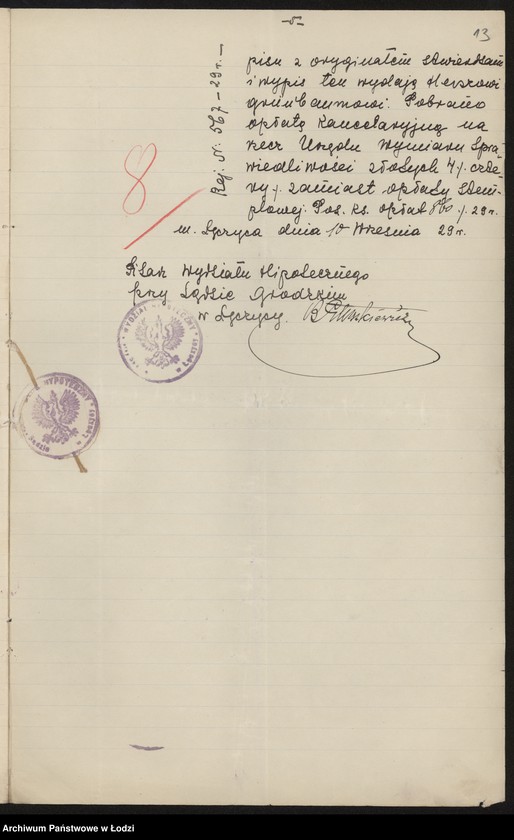 -5-
13
Rej. N. 567-29 r.-
pisu z oryginałem stwierdzam
i wypis ten wydają Herszowi
Grünbaumowi. Pobrano
opłatę kancelaryjną na
rzecz Urzędu Wymiaru Spra-
wiedliwości złotych 4 /. czte-
ry /. zamiast opłaty stem-
plowej. Pos. ks. opłat /. 29 r.
m. Łęczyca dnia 10 Września 29 r.
8
Pisarz Wydziału Hipotecznego
przy Sądzie Grodzkim
w Łęczycy.
WYDZIAŁ HIPOTECZNY
w Łęczycy
HYPOTECZNY
w Łęczycy
Archiwum Państwowe w Łodzi